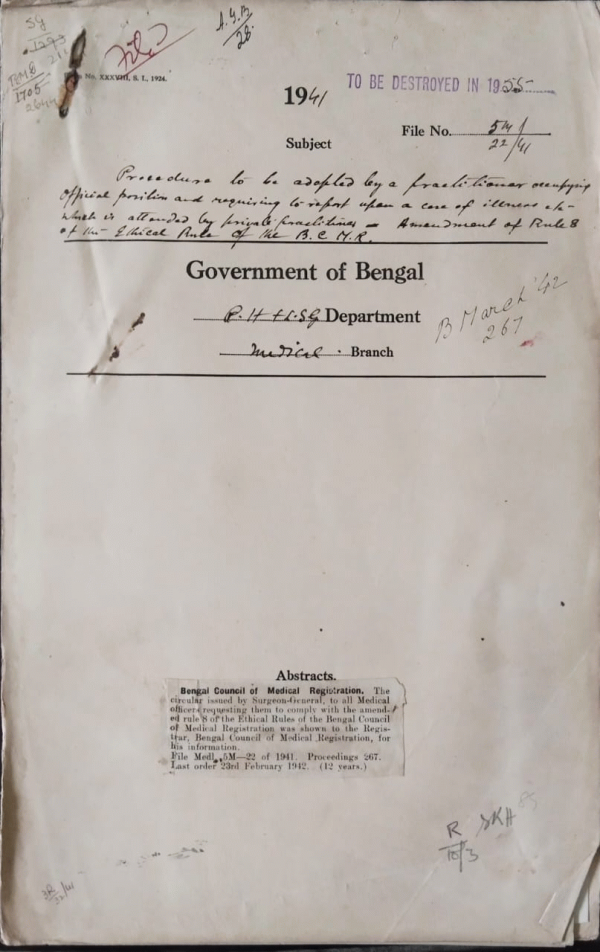 SG
A.G.B
28
Filed
No. XXXVIII, S. I., 1924.
1705
1941
TO BE DESTROYED IN 1955
File No. 5M/
22/41
Subject
Procedure to be adopted by a practitioner occupying
official position and requiring to report upon a case of illness etc
which is attended by private practitioners — Amendment of Rule 8
of the Ethical Rule of the B.C.M.R.
Government of Bengal
P.H & L.S.G Department
Medical Branch
B March '42
267
Abstracts.
Bengal Council of Medical Registration. The
circular issued by Surgeon-General, to all Medical
officers requesting them to comply with the amend-
ed rule 8 of the Ethical Rules of the Bengal Council
of Medical Registration was shown to the Regis-
trar, Bengal Council of Medical Registration, for
his information.
File Medl. 5M—22 of 1941. Proceedings 267.
Last order 23rd February 1942. (12 years.)
R
10/3